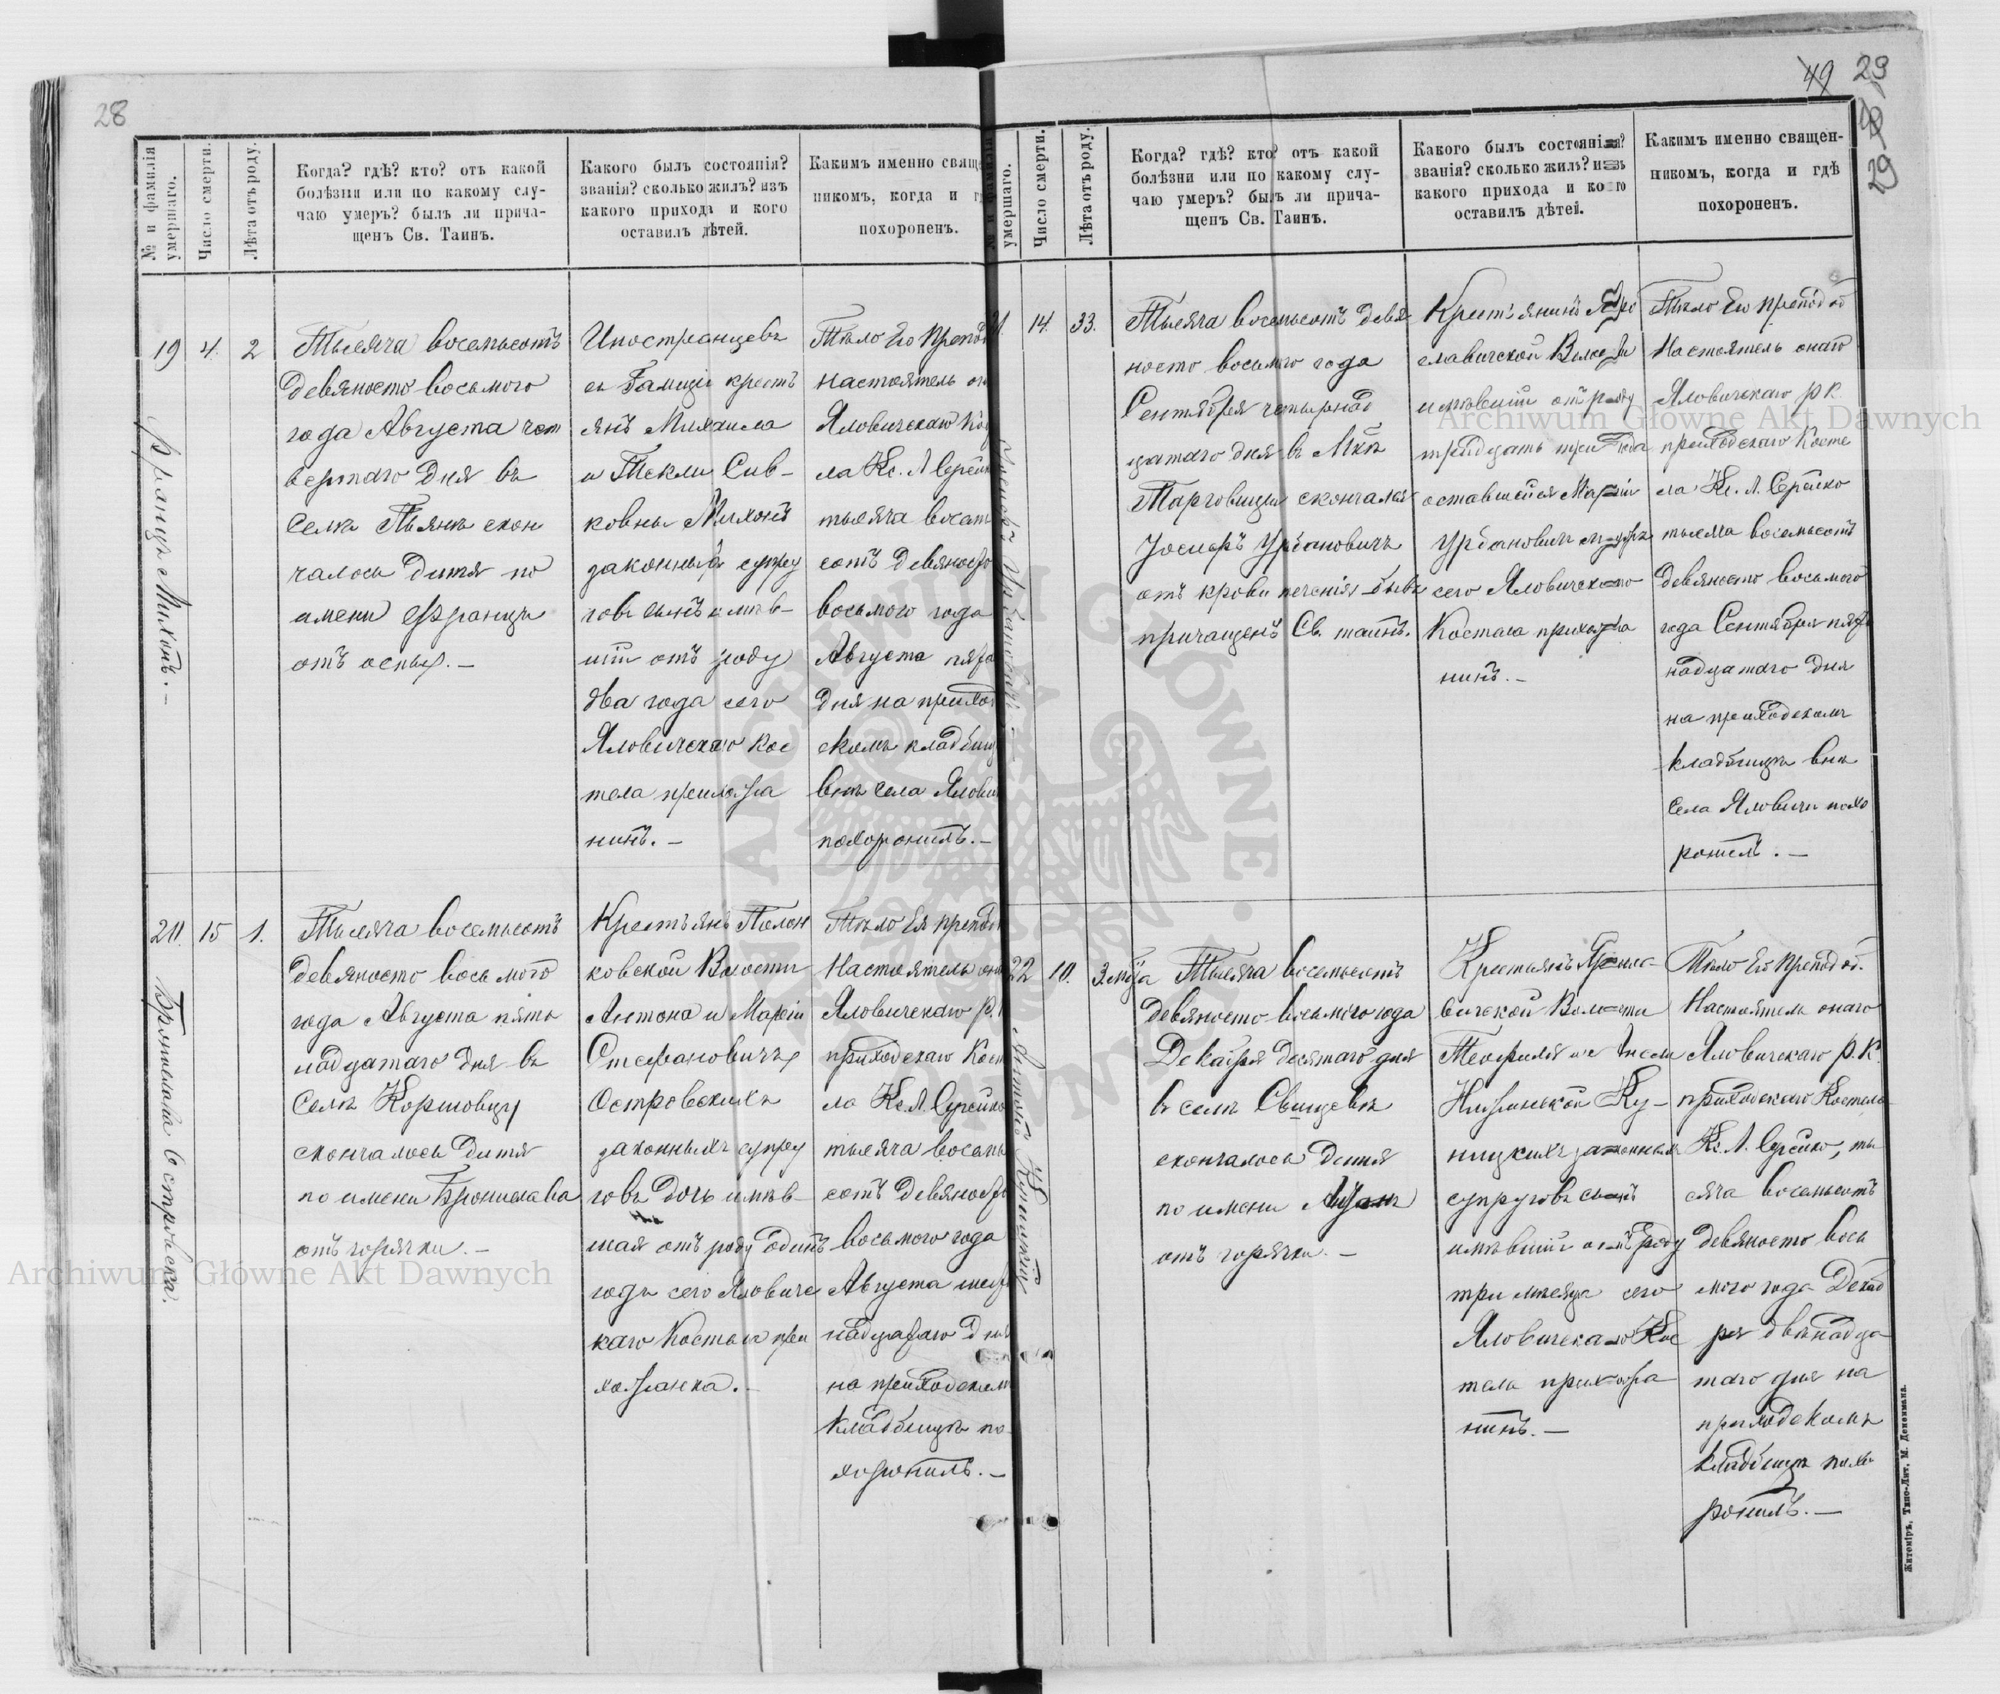 28
№ и фамилія умершаго.
Число смерти.
Лѣта отъ роду.
Когда? гдѣ? кто? отъ какой
болѣзни или по какому слу-
чаю умеръ? былъ ли прича-
щенъ Св. Таинъ.
Какого былъ состоянія?
званія? сколько жилъ? изъ
какого прихода и кого
оставилъ дѣтей.
Какимъ именно свяще
никомъ, когда и г
похороненъ.
19
4.
2
Францъ Михонъ. –
Тысяча восемьсотъ
девяносто восьмого
года Августа чет
вертаго дня въ
Селѣ Пьянѣ скон
чалось дитя по
имени Францъ
отъ оспы. –
Иностранцевъ
съ Галиціи кресть
янъ Михаила
и Текли Сив-
ковны Михонъ
законныхъ супру
говъ сынъ имѣв-
шій отъ роду
два года сего
Яловичскаго кос
тела прихожа
нинъ. –
Тѣло Его Препод
настоятель он
Яловичскаго Кос
ла Кс. Л Серейк
тысяча восем
сотъ девяносто
восьмого года
Августа пята
дня на приход
скомъ кладбищ
внѣ села Ялови
похоронилъ. –
20.
15
1.
Бронислава Островска.
Тысяча восемьсотъ
девяносто восьмого
года Августа пят
надцатаго дня въ
Селѣ Коршовцу
скончалось дитя
по имени Бронислава
отъ горячки. –
Крестьянъ Полон
ковской Волости
Антона и Маріи
Стефановичъ
Островскихъ
законныхъ супру
говъ дочь имѣв-
шая отъ роду одинъ
годъ сего Яловичс
каго Костела при
хожанка. –
Тѣло Ея препод
Настоятель он
Яловичскаго Р.
приходскаго Кост
ла Кс. Л. Серейко
тысяча восемь
сотъ девяносто
восьмого года
Августа шест
надцатаго дня
на приходскомъ
кладбищѣ по
хоронилъ. –
49 29
29
№ и фамилія умершаго.
Число смерти.
Лѣта отъ роду.
Когда? гдѣ? кто? отъ какой
болѣзни или по какому слу-
чаю умеръ? былъ ли прича-
щенъ Св. Таинъ.
Какого былъ состоянія?
званія? сколько жилъ? изъ
какого прихода и кого
оставилъ дѣтей.
Какимъ именно священ-
никомъ, когда и гдѣ
похороненъ.
21.
14.
33.
Іосифъ Урбановичъ. –
Тысяча восемьсотъ девя
носто восьмого года
Сентября четырнад
цатаго дня въ Мкѣ
Тарговицы скончался
Іосифъ Урбановичъ
отъ крови теченія бывъ
причащенъ Св. таинъ.
Крестьянинъ Яро
славичской Волости
имѣвшій отъ роду
тридцать три года
оставшейся Маріи
Урбановичъ мужъ
сего Яловичскаго
Костела прихожа
нинъ. –
Тѣло Его препод об
Настоятель онаго
Яловичскаго р К
приходскаго Косте
ла Кс. Л. Серейко
тысяча восемьсотъ
девяносто восьмого
года Сентября пят
надцатаго дня
на приходскомъ
кладбищѣ внѣ
села Яловичи похо
ронилъ. –
22
10.
3. мца
Антонъ Куницкій
Тысяча восемьсотъ
девяносто восьмого года
Декабря десятаго дня
въ селѣ Свищевѣ
скончалось дитя
по имени
отъ горячки. –
Крестьянъ Яросла-
вичской Волости
Теофиля и
Ку-
ницкихъ законныхъ
супруговъ сынъ
имѣвшій отъ роду
три мѣсяца сего
Яловичскаго Кос
тела прихожа
нинъ. –
Тѣло Его Препод об.
Настоятель онаго
Яловичскаго Р. К.
приходскаго Костела
Кс. Л. Серейко, ты
сяча восемьсотъ
девяносто вось
мого года Декаб
ря двѣнадца
таго дня на
приходскомъ
кладбищѣ похо
ронилъ. –
Житоміръ, Типо-Лит. М. Дененмана.
Archiwum Główne Akt Dawnych
Archiwum Główne Akt Dawnych